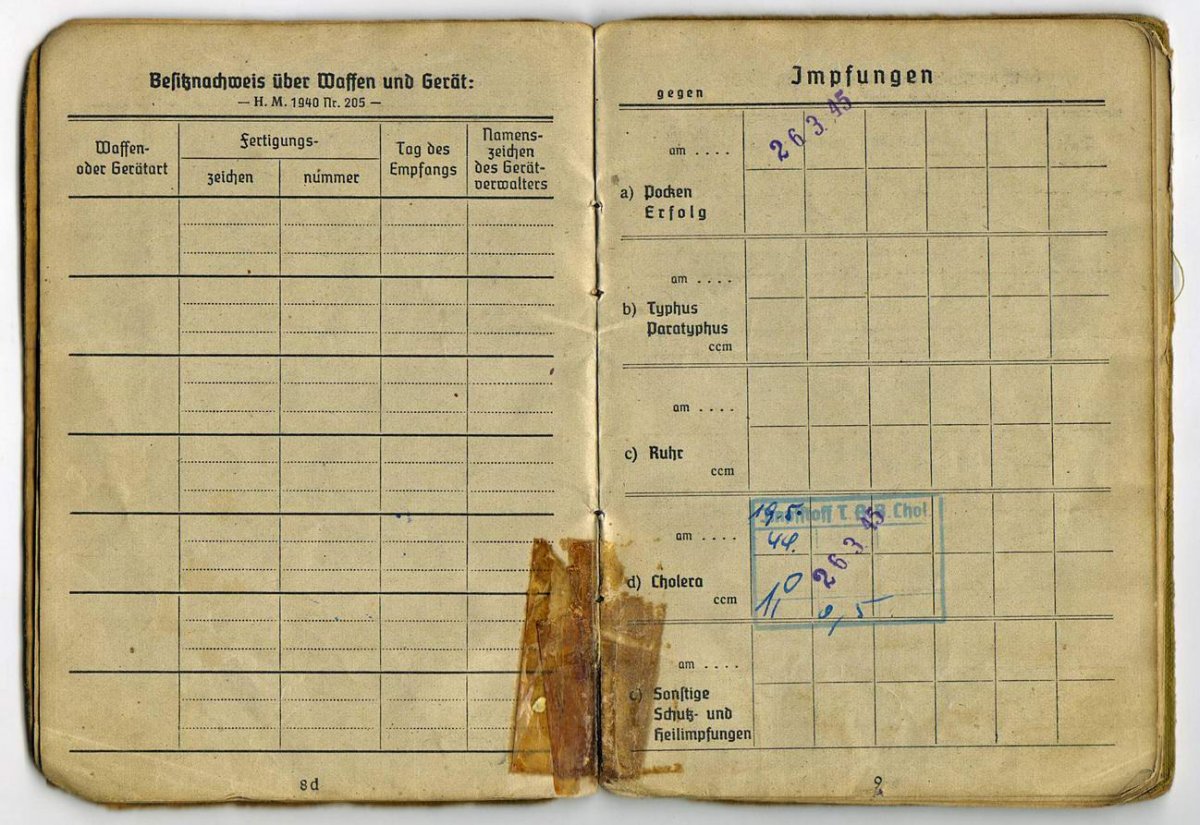 Besitznachweis über Waffen und Gerät:
— H. M. 1940 Nr. 205 —
Waffen-
oder Gerätart
Fertigungs-
zeichen
nummer
Tag des
Empfangs
Namens-
zeichen
des Gerät-
verwalters
8d
Impfungen
gegen
am ....
26.3.45
a) Pocken
Erfolg
am ....
b) Typhus
Paratyphus
ccm
am ....
c) Ruhr
ccm
T. A. B. Chol
am ....
19.5.
44.
26.3.45
d) Cholera
ccm
1,0
0,5
am ....
e) Sonstige
Schutz- und
Heilimpfungen
9